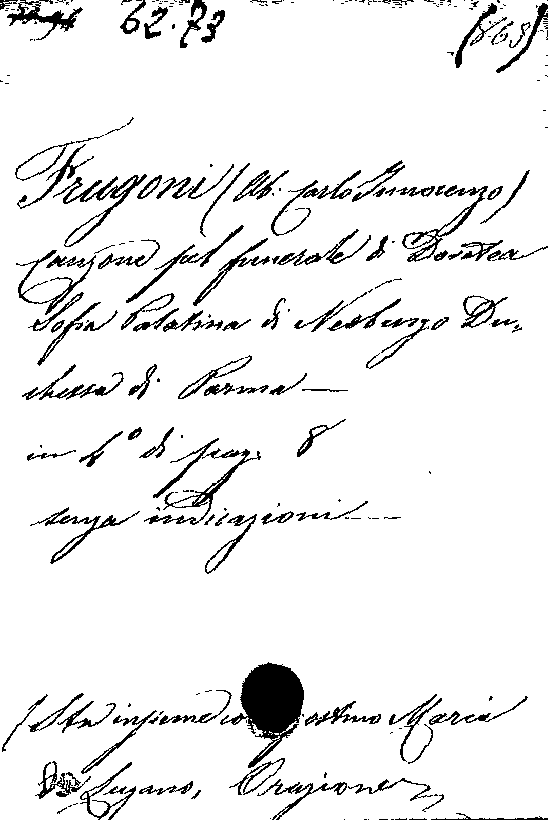 62.73 (863)
Frugoni (Ab. Carlo Innocenzo)
Canzone pel funerale di Dorotea
Sofia Palatina di Neoburgo Du-
chessa di Parma —
in 4° di pag. 8
senza indicazioni —
(Sta insieme co Maria
Da Lugano, Orazione